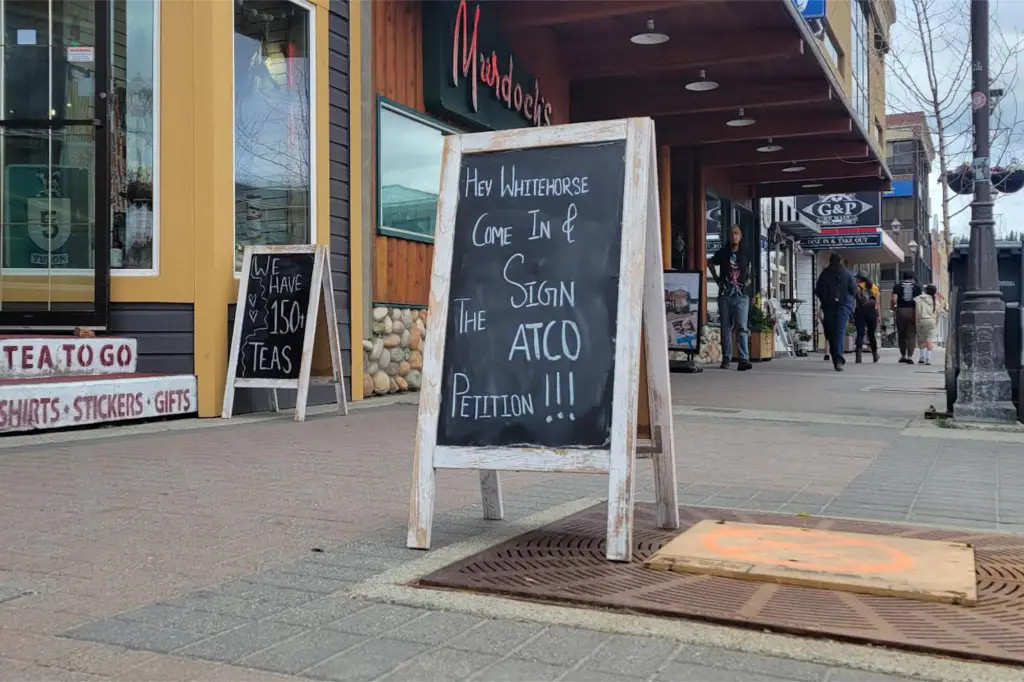 Murdoch's
HEY WHITEHORSE
COME IN &
SIGN
THE
ATCO
PETITION !!!
WE
HAVE
150+
TEAS
TEA TO GO
SHIRTS · STICKERS · GIFTS
5
YUKON
G&P
DINE IN & TAKE OUT